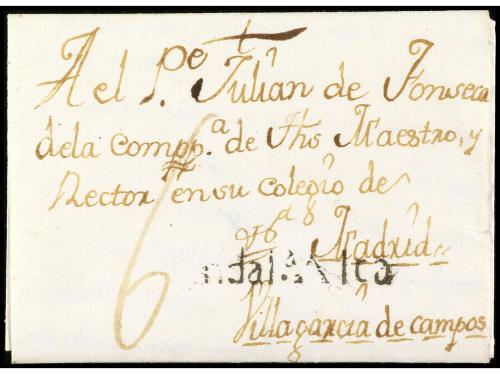 A el P.e Julian de Fonseca
dela Comp.a de Jhs Maestro, y
Rector en su Colegio de
6
Madrid
ndal.A Alta
Villagarcia de campos